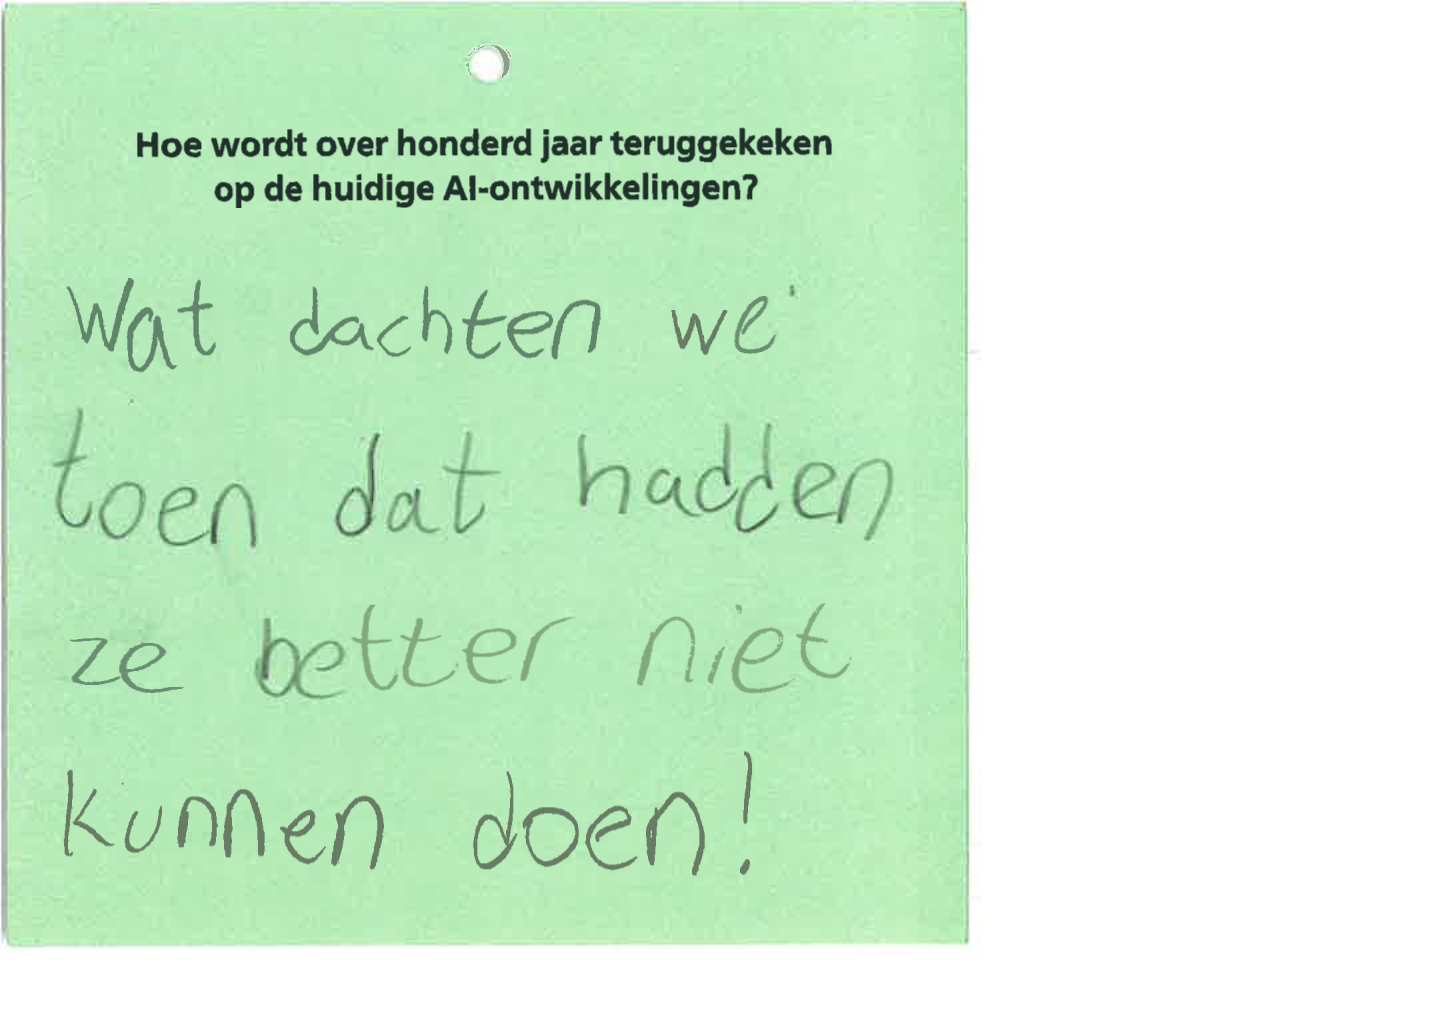 Hoe wordt over honderd jaar teruggekeken
op de huidige AI-ontwikkelingen?
Wat dachten we
toen dat hadden
ze better niet
kunnen doen!